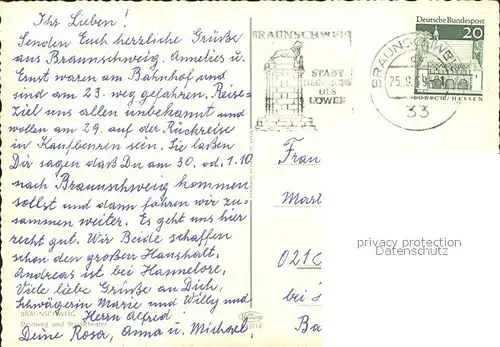 Ihr Lieben!
Senden Euch herrliche Grüße
aus Braunschweig. Annelies u.
Ernst waren am Bahnhof und
sind am 23. weg gefahren. Reise-
Ziel uns allen unbekannt und
wollen am 29. auf der Rückreise
in Kaufbeuren sein. Sie laßen
Dir sagen daß Du am 30. od. 1.10
nach Braunschweig kommen
sollst und dann fahren wir zu-
sammen weiter. Es geht uns hier
recht gut. Wir Beide schaffen
schon den großen Haushalt.
Andreas ist bei Hannelore.
Viele liebe Grüße an Dich,
Schwägerin Marie und Willy und
Herrn Alfred
Deine Rosa, Anna u. Michael
BRAUNSCHWEIG
Steinweg und Staatstheater
BRAUNSCHWEIG
STADT
HEINRICHS
DES
LÖWEN
BRAUNSCHWEIG
25.9.69
33
Deutsche Bundespost
20
LORSCH/HESSEN
Frau
Mart
021
bei
Ba
privacy protection
Datenschutz